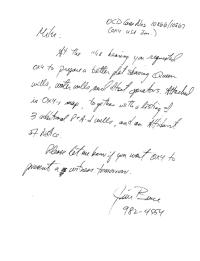 OCD Case Nos 10866/10867
(OXY USA Inc.)
Mike:
At the hearing you requested
OXY to prepare a better plat showing Queen
wells, water wells, and offset operators. Attached
is OXY's map, together with a listing of
3 additional P+A'd wells, and an Affidavit
of Notice.
Please let me know if you want OXY to
present a witness tomorrow.
Jim Bruce
982-4554